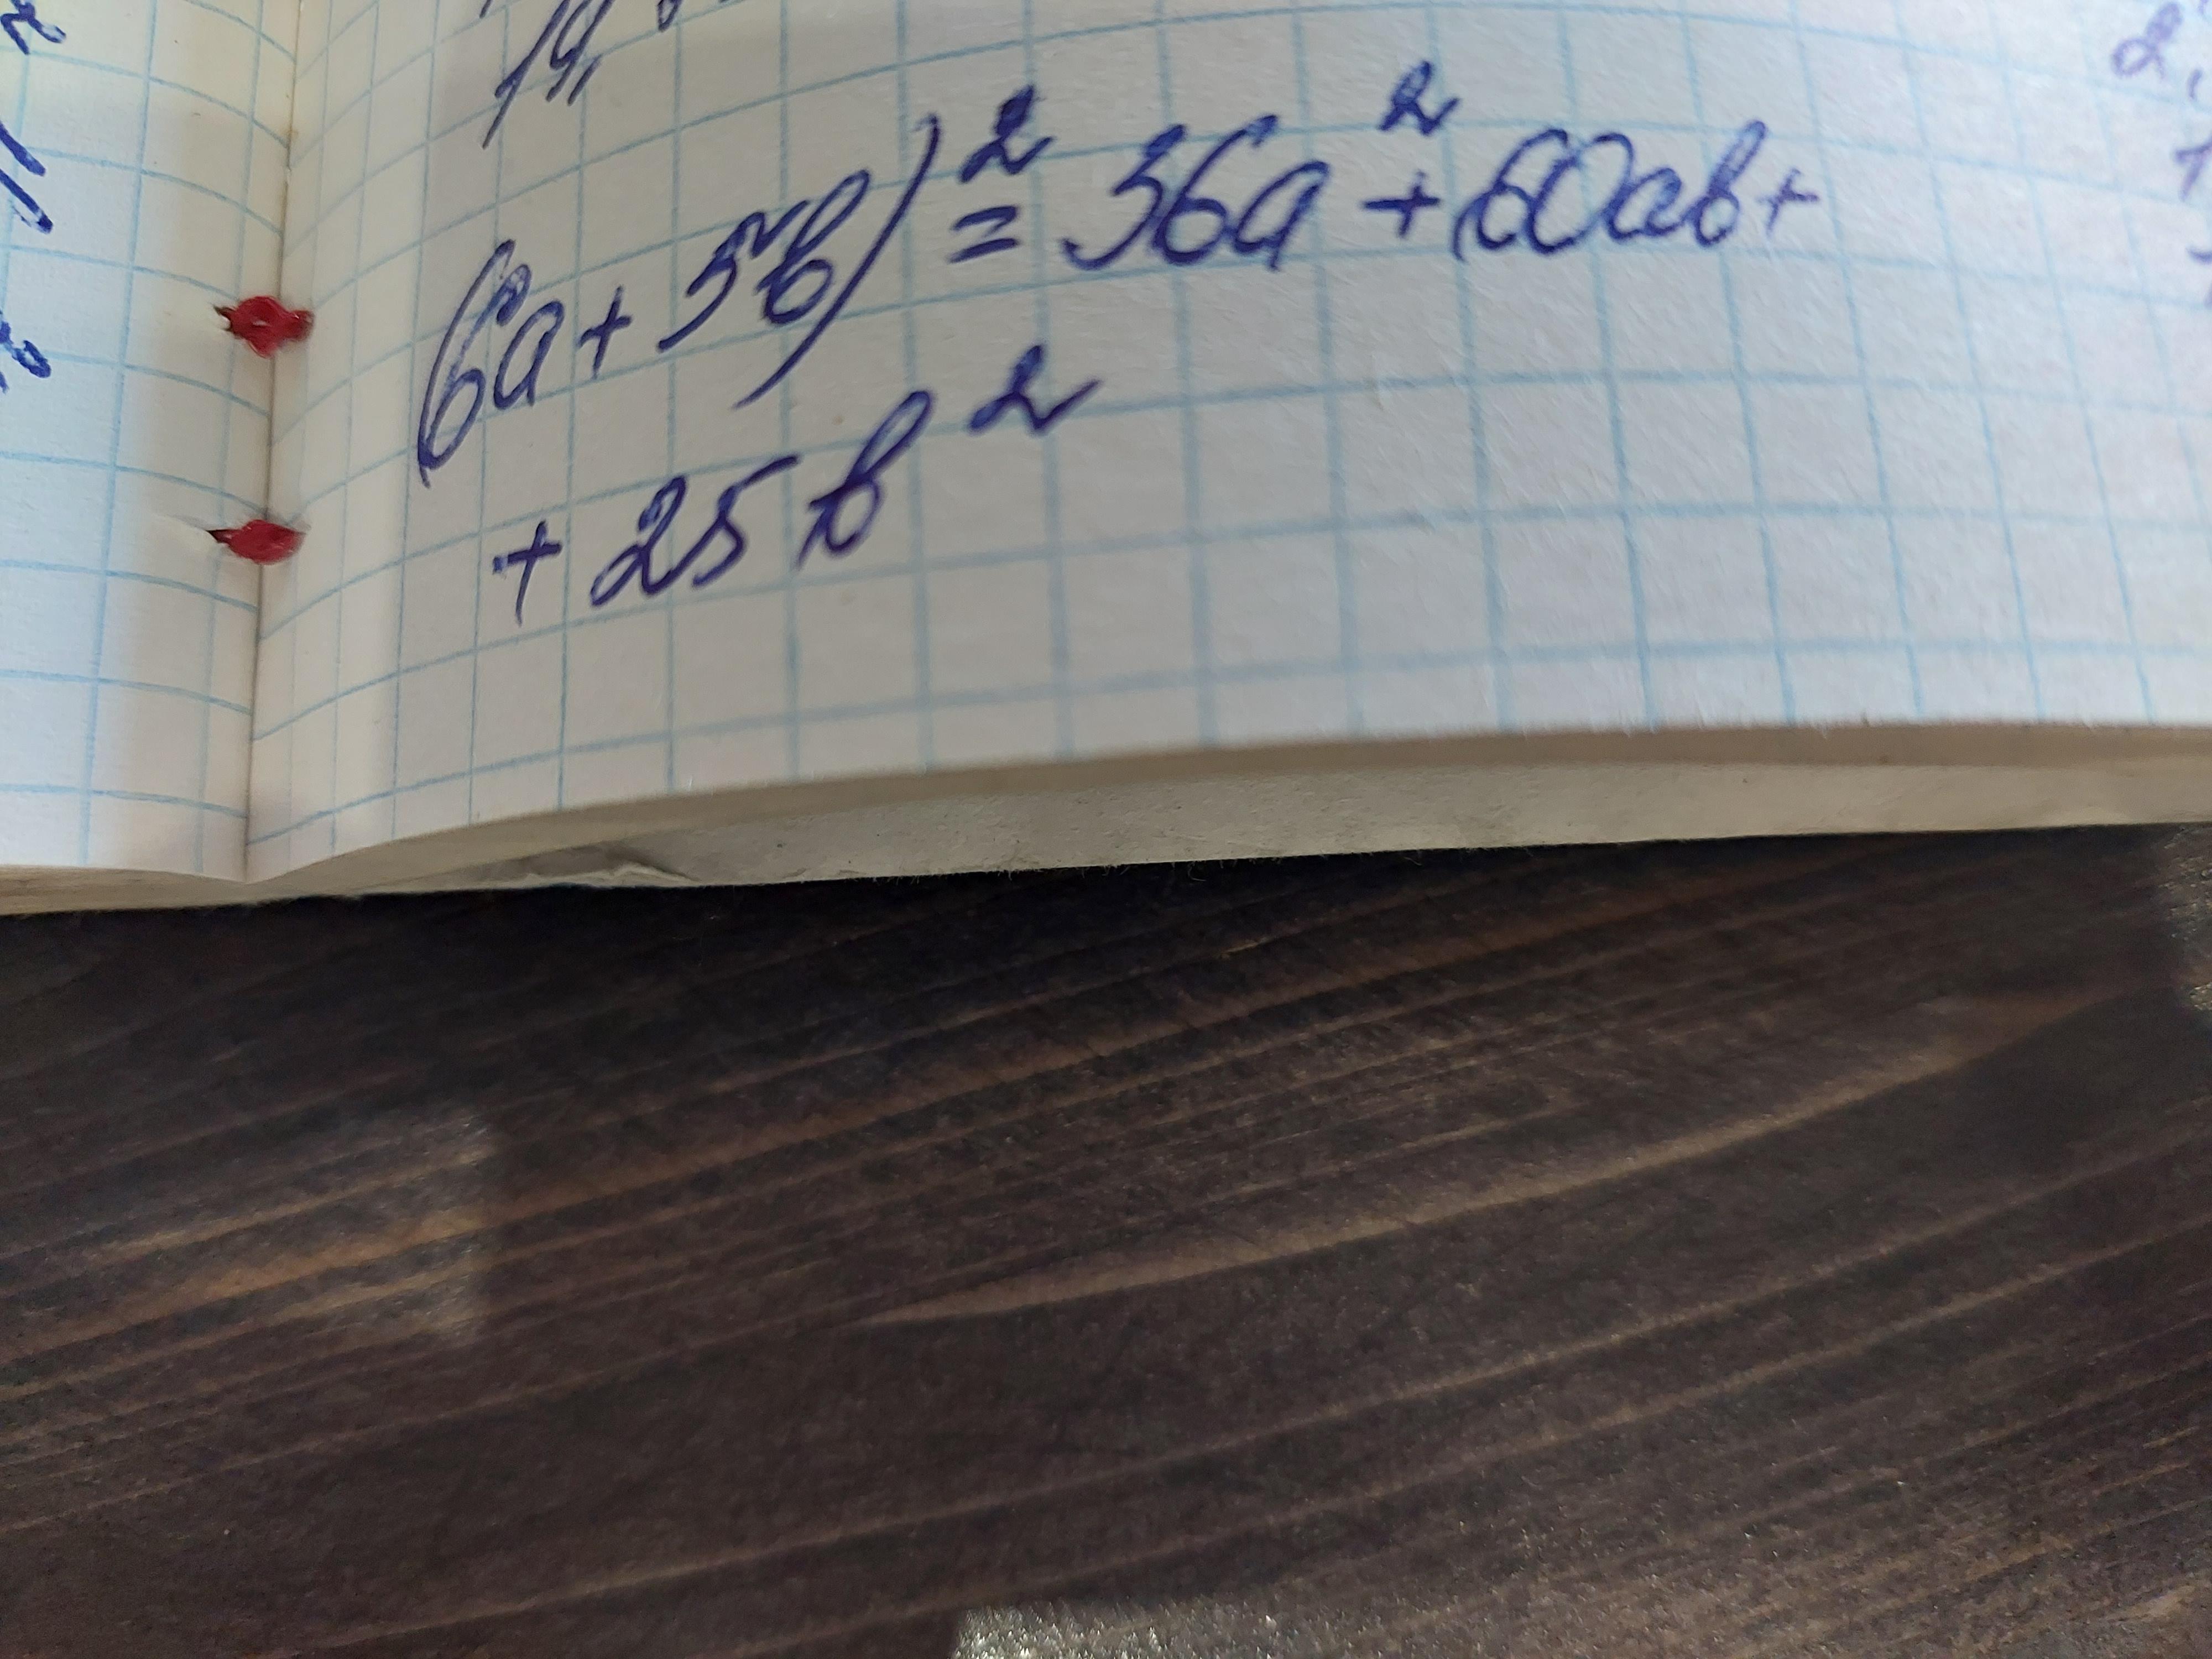 19,
(6a + 5b)² = 36a² + 60ab +
+ 25b²